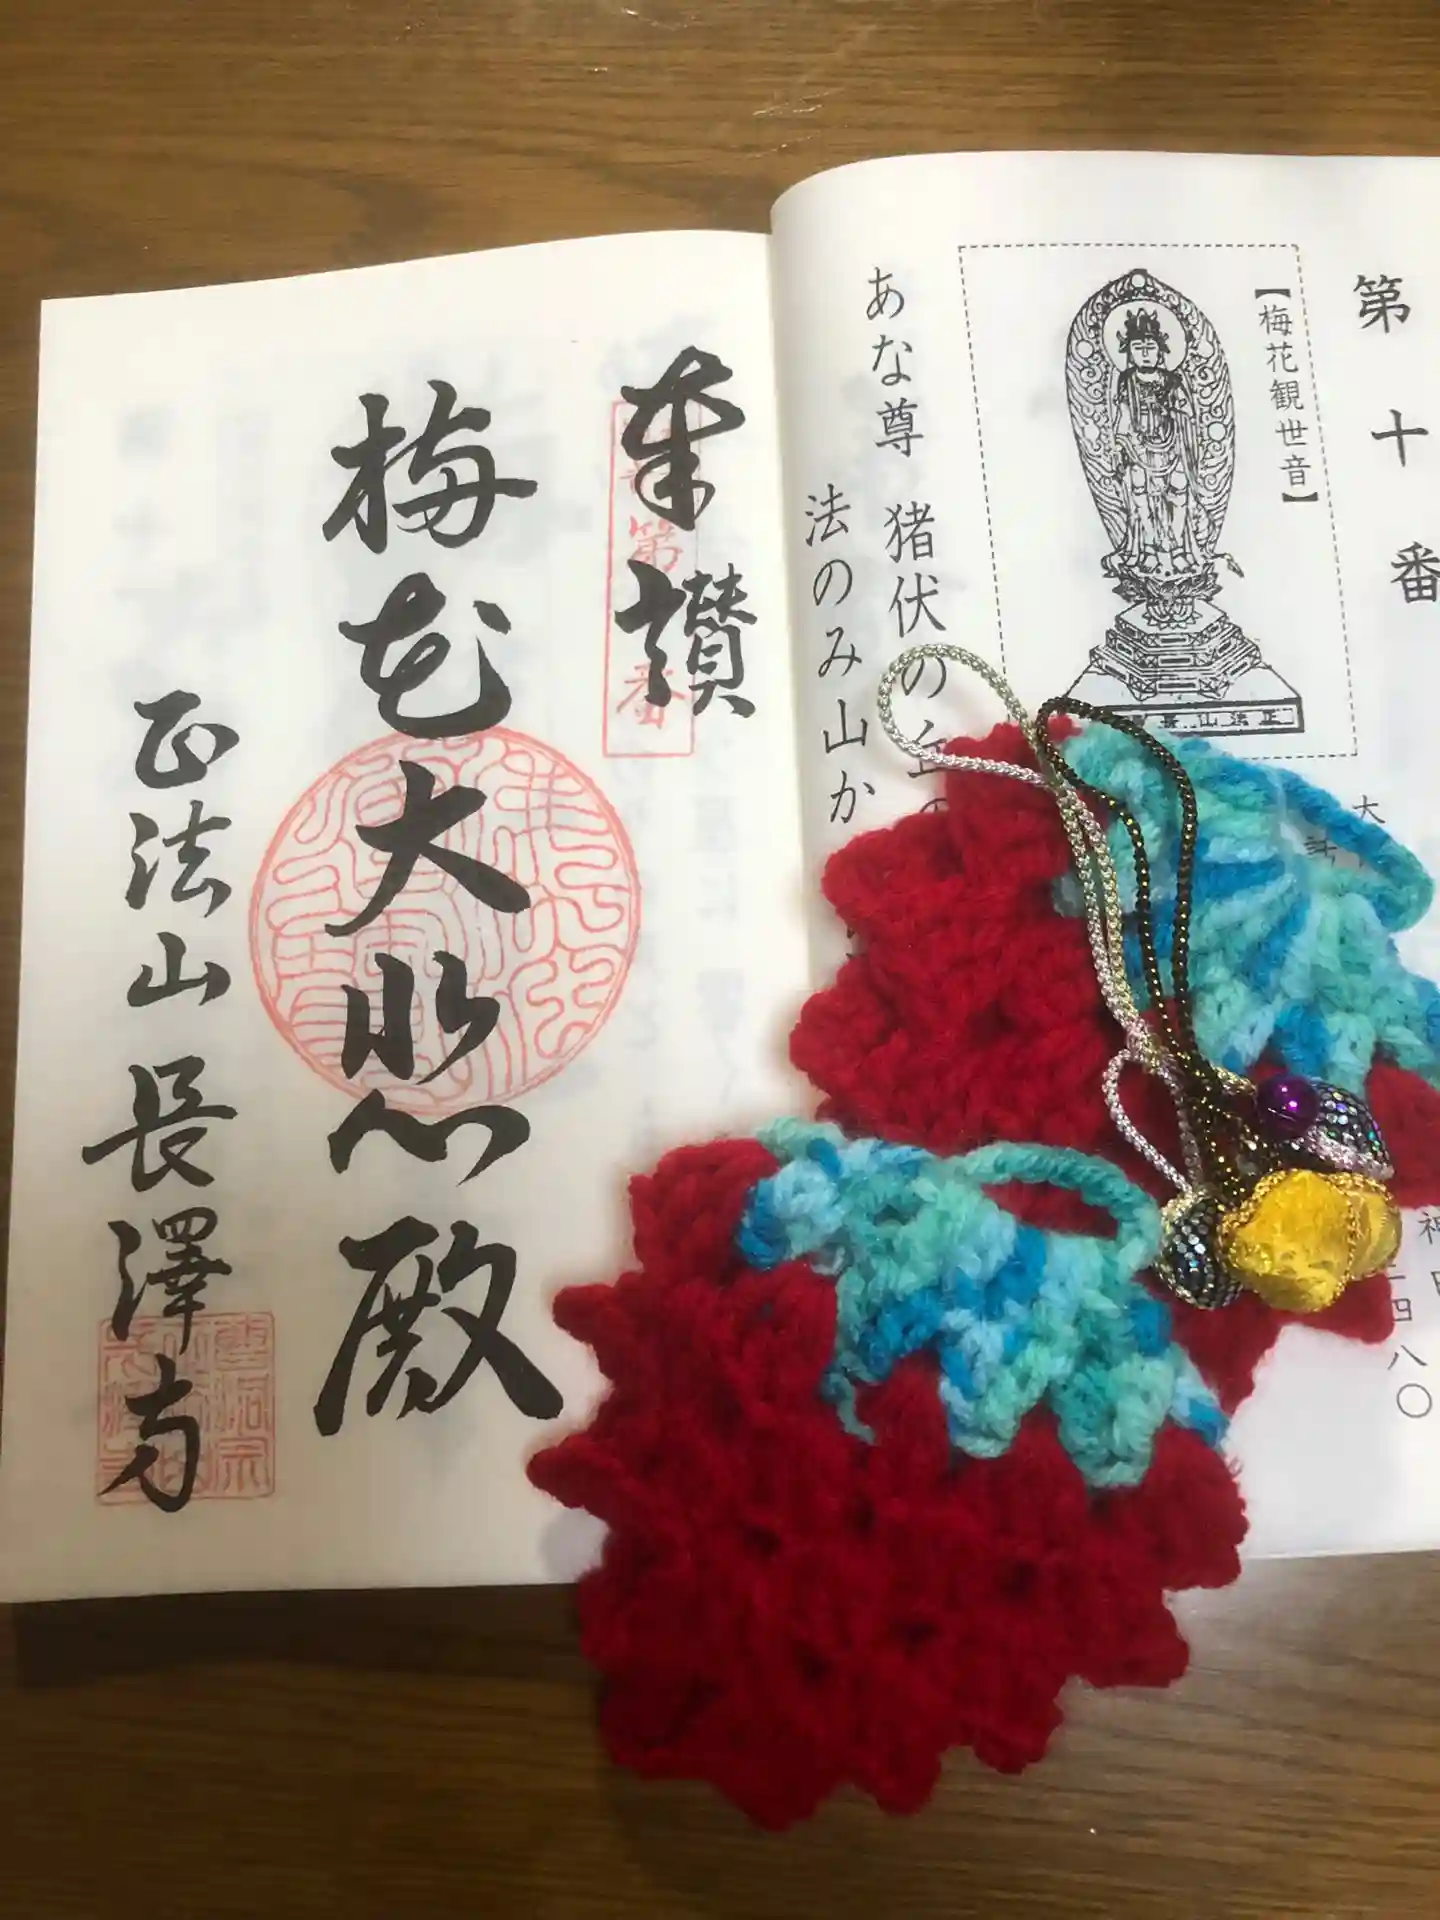 第十番
【梅花観世音】
正法山長
あな尊 猪伏の丘の
法のみ山か
大
神
四八〇
奉讃
第
番
梅花大悲殿
正法山長澤寺
曹洞宗